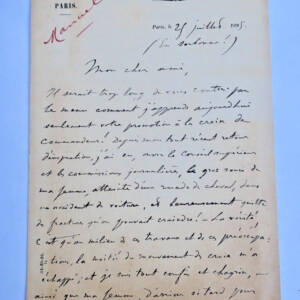 PARIS.
Manuel
Paris, le 25 juillet 1895.
(En Sorbonne)
Mon cher ami,
Il serait trop long de vous conter par
le menu comment j'apprends aujourd'hui
seulement votre promotion à la croix de
Commandeur! depuis mon tout récent retour
d'inspection, j'ai eu, avec le Conseil supérieur
et les commissions journalières, le que
ma femme, atteinte d'une de cheval, dans
un accident de voiture, et heureusement quitte
de fracture qu'on pouvait craindre! La vérité
c'est qu'au milieu de ces travaux et de ces préoccupa-
tion, la moitié du mouvement de croix m'a
échappé; et je suis tout confus et chagrin,
ainsi que ma femme, d'arriver si tard pour